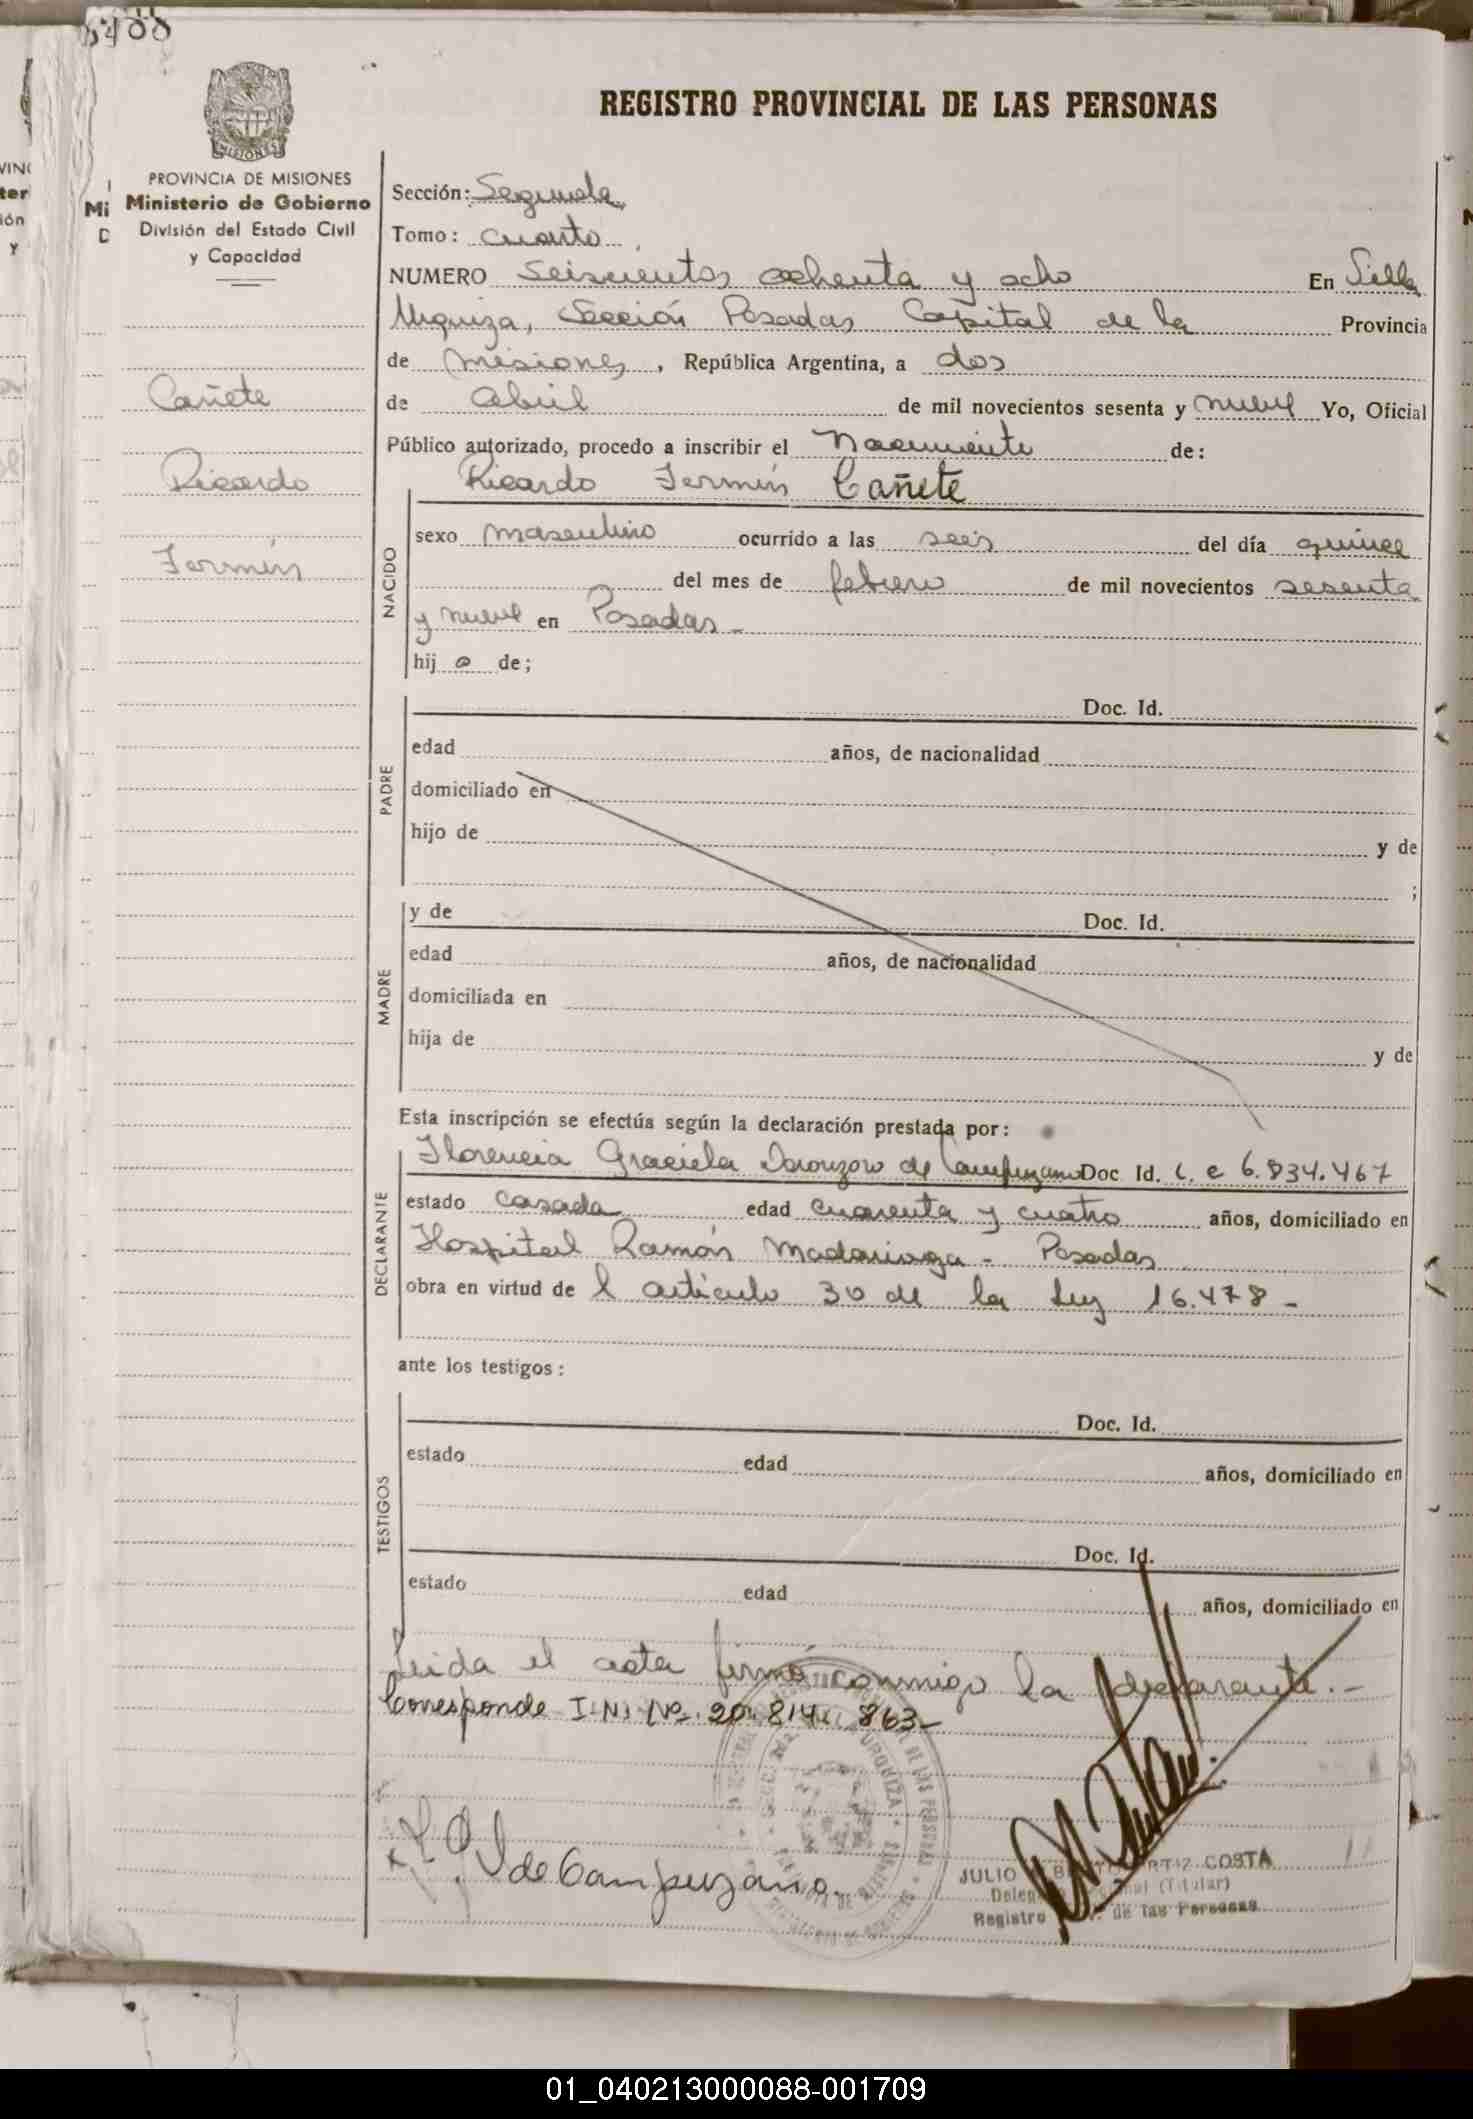 REGISTRO PROVINCIAL DE LAS PERSONAS
MISIONES
PROVINCIA DE MISIONES
Ministerio de Gobierno
División del Estado Civil
y Capacidad
Cañete
Ricardo
Fermín
Sección: Segunda
Tomo: cuarto
NUMERO Seiscientos ochenta y ocho En Villa
Urquiza, Sección Posadas Capital de la Provincia
de Misiones, República Argentina, a dos
de abril de mil novecientos sesenta y nueve Yo, Oficial
Público autorizado, procedo a inscribir el Nacimiento de:
Ricardo Fermín Cañete
NACIDO
sexo masculino ocurrido a las seis del día quince
del mes de febrero de mil novecientos sesenta
y nueve en Posadas -
hij o de;
PADRE
Doc. Id.
edad años, de nacionalidad
domiciliado en
hijo de y de
;
MADRE
y de Doc. Id.
edad años, de nacionalidad
domiciliada en
hija de y de
Esta inscripción se efectús según la declaración prestada por:
DECLARANTE
Florencia Graciela de Campuzano Doc. Id. L. C 6.834.467
estado casada edad cuarenta y cuatro años, domiciliado en
Hospital Ramón Madariaga - Posadas
obra en virtud de l artículo 30 de la Ley 16.478 -
ante los testigos:
TESTIGOS
Doc. Id.
estado edad años, domiciliado en
Doc. Id.
estado edad años, domiciliado en
Leida el acta firmó conmigo la declarante.-
Corresponde I.N. Nº 20.814.863-
de Campuzano
URQUIZA
DE LAS PERSONAS
JULIO ORTIZ COSTA
(Titular)
Registro de las Personas
01_040213000088-001709